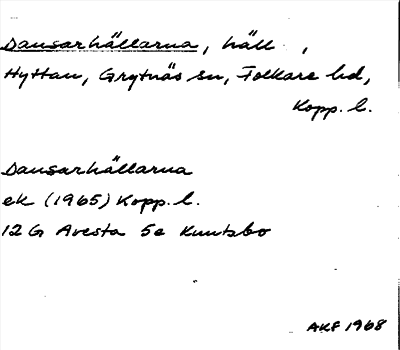 Dansarhällarna, häll ,
Hyttan, Grytnäs sn, Folkare hd,
Kopp. l.
Dansarhällarna
ek (1965) Kopp. l.
12 G Avesta 5e Knutsbo
AKF 1968